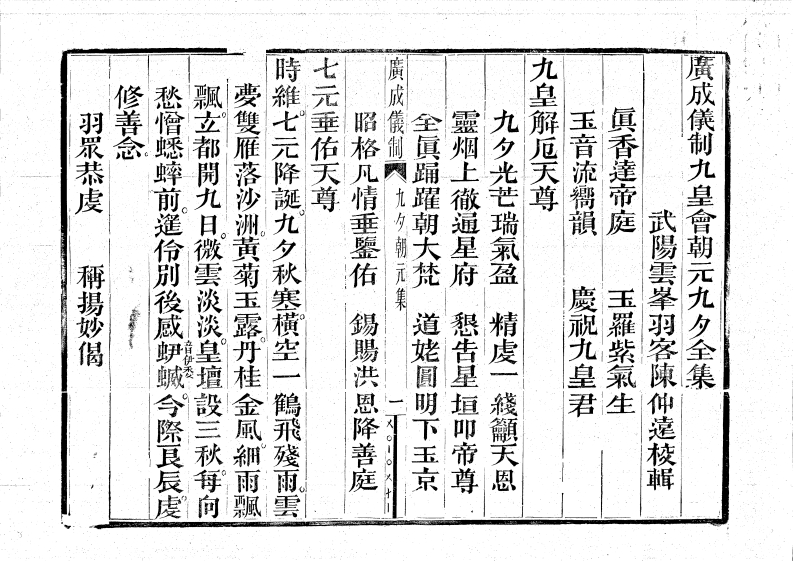 廣成儀制九皇會朝元九夕全集
武陽雲峯羽客陳仲遠校輯
眞香達帝庭　玉羅紫氣生
玉音流嚮韻　慶祝九皇君
九皇解厄天尊
九夕光芒瑞氣盈　精虔一綫籲天恩
靈烟上徹通星府　懇告星垣叩帝尊
全眞踊躍朝大梵　道姥圓明下玉京
廣成儀制　九夕朝元集　一
昭格凡情垂鑒佑　錫賜洪恩降善庭
七元垂佑天尊
時維七元降誕。九夕秋寒。橫空一鶴飛殘雨。雲
夢雙雁落沙洲。黃菊玉露。丹桂金風。細雨飄
飄。立都開九日。微雲淡淡。皇壇設三秋。每向
愁憎蟋蟀前。遙伶別後感蛜蝛。音伊委今際良辰。虔
修善念。
羽眾恭虔　稱揚妙偈